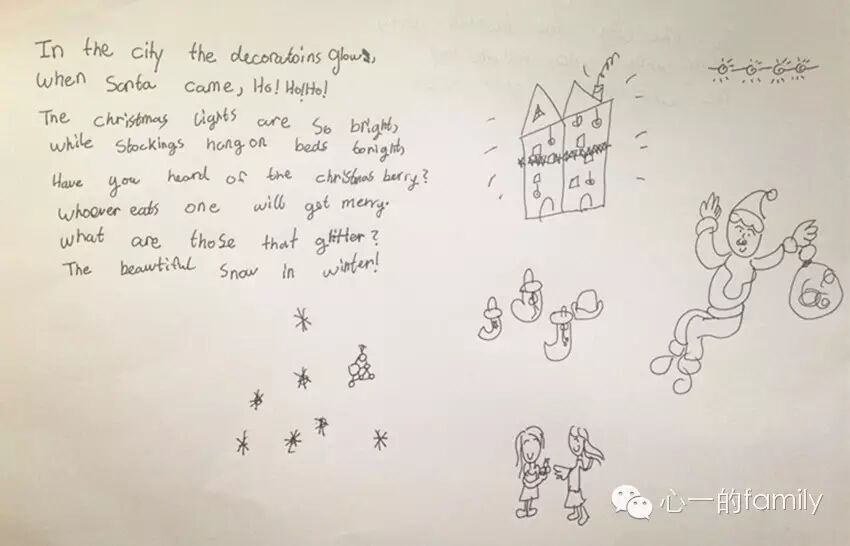 In the city the decoratoins glows,
When Santa came, Ho! Ho! Ho!
The christmas lights are so bright,
while stockings hang on beds tonight,
Have you heard of the christmas berry?
whoever eats one will get merry.
what are those that glitter?
The beautiful snow in winter!
心一的family